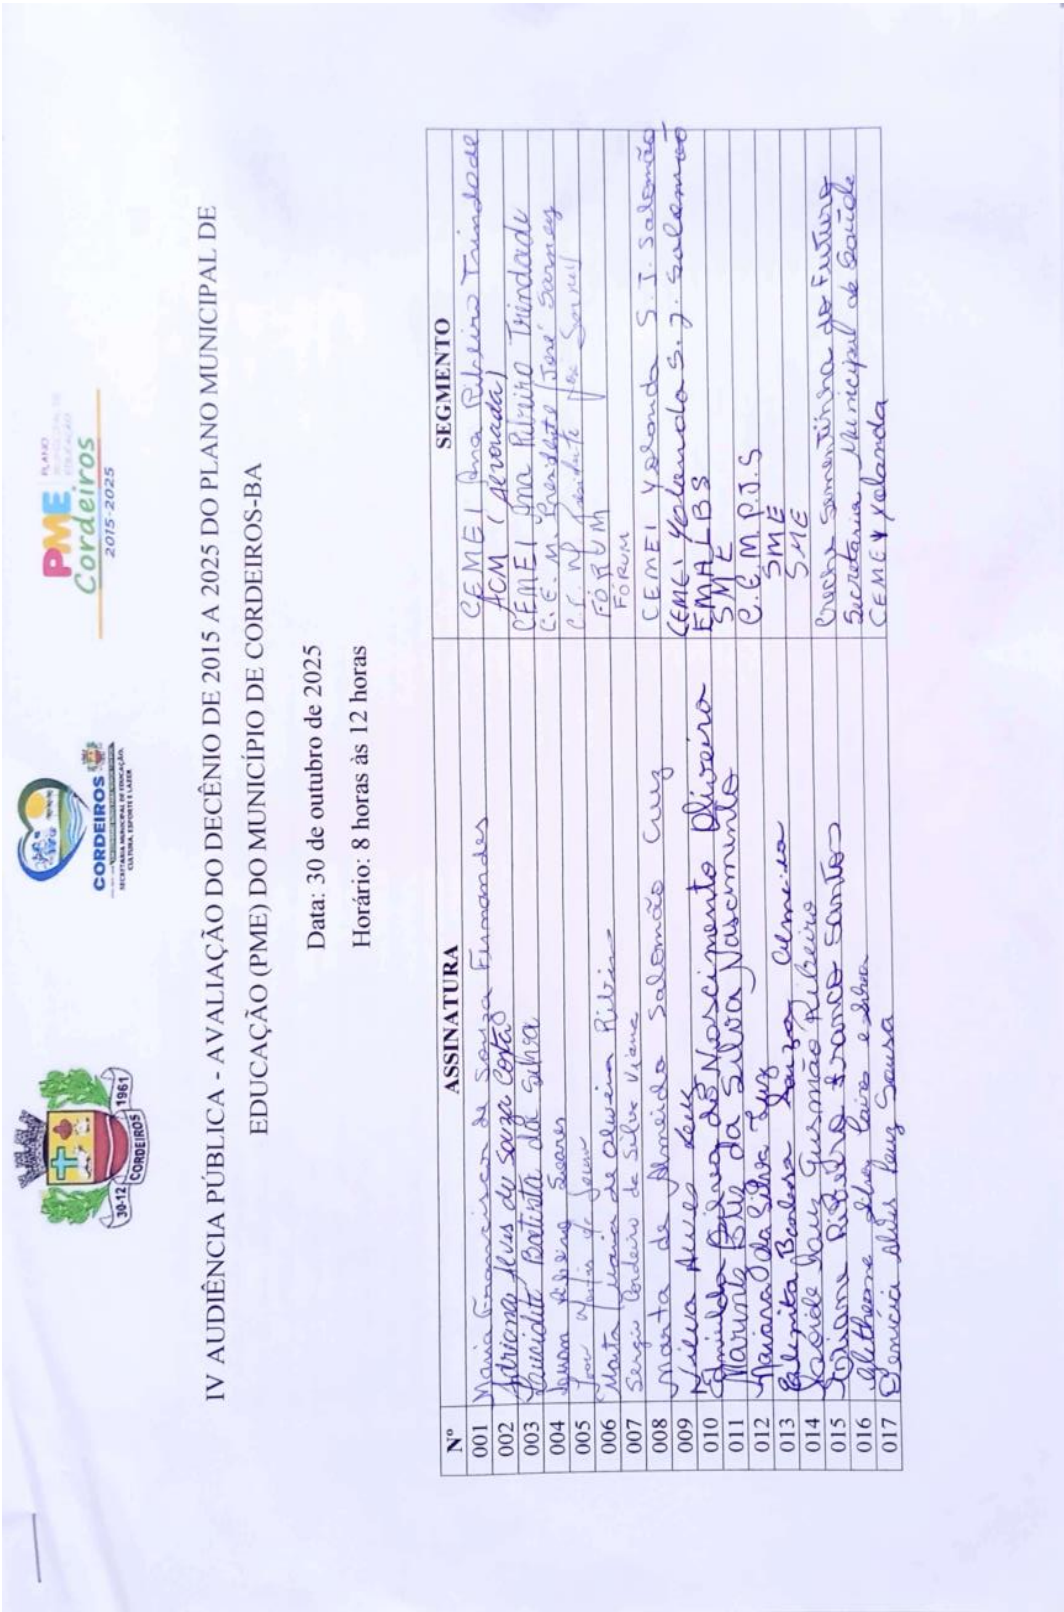 30-12 CORDEIROS 1961
CORDEIROS
SECRETARIA MUNICIPAL DE EDUCAÇÃO,
CULTURA, ESPORTE E LAZER
PME PLANO
MUNICIPAL DE
EDUCAÇÃO
Cordeiros
2015-2025
IV AUDIÊNCIA PÚBLICA - AVALIAÇÃO DO DECÊNIO DE 2015 A 2025 DO PLANO MUNICIPAL DE
EDUCAÇÃO (PME) DO MUNICÍPIO DE CORDEIROS-BA
Data: 30 de outubro de 2025
Horário: 8 horas às 12 horas
Nº ASSINATURA SEGMENTO
001 Maria Francisca de Souza Fernandes CEMEI Ana Ribeiro Trindade
002 Adriana Alves de Souza Costa ACM (Alvorada)
003 Laucidite Batista da Silva CEMEI Ana Ribeiro Trindade
004 Soares C.E.M. Presidente José Sarney
005 Presidente José Sarney
006 Marta Maria de Oliveira Ribeiro FÓRUM
007 Sergio Cordeiro da Silva Viana FÓRUM
008 Marta de Almeida Salomão Cruz CEMEI Yolanda S. J. Salomão
009 Nilva Alves CEMEI Yolanda S. J. Salomão
010 do Nascimento Oliveira EMALBS
011 da Silva Nascimento SME
012 Naiara da Silva Luz C.E.M.P.J.S
013 Barbosa Souza Almeida SME
014 Gusmão Ribeiro SME
015 Ribeiro Franco Santos Creche Sementinha do Futuro
016 Silva Secretaria Municipal de Saúde
017 Alves Sousa CEMEI Yolanda